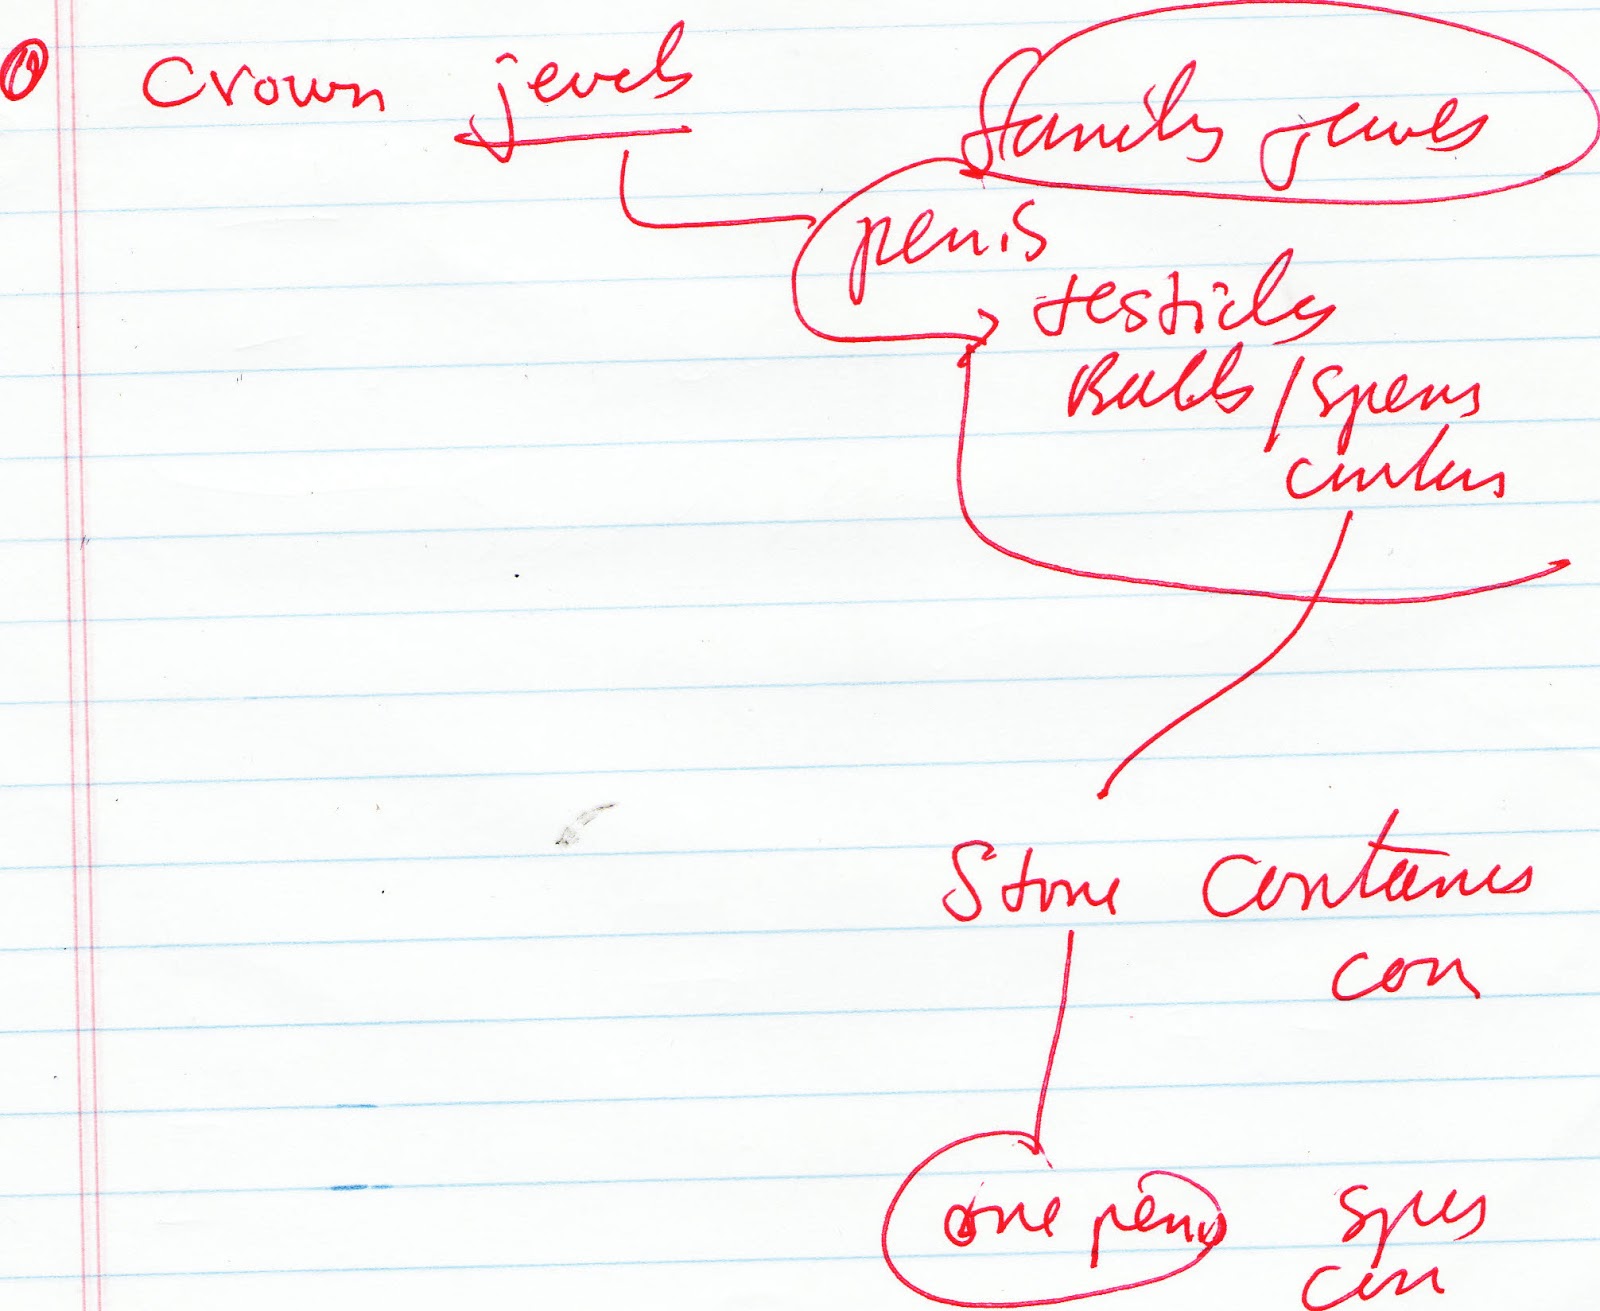 Crown jewels
family jewels
penis
testicles
Balls / sperm
Stone Contains
con
one penis
con